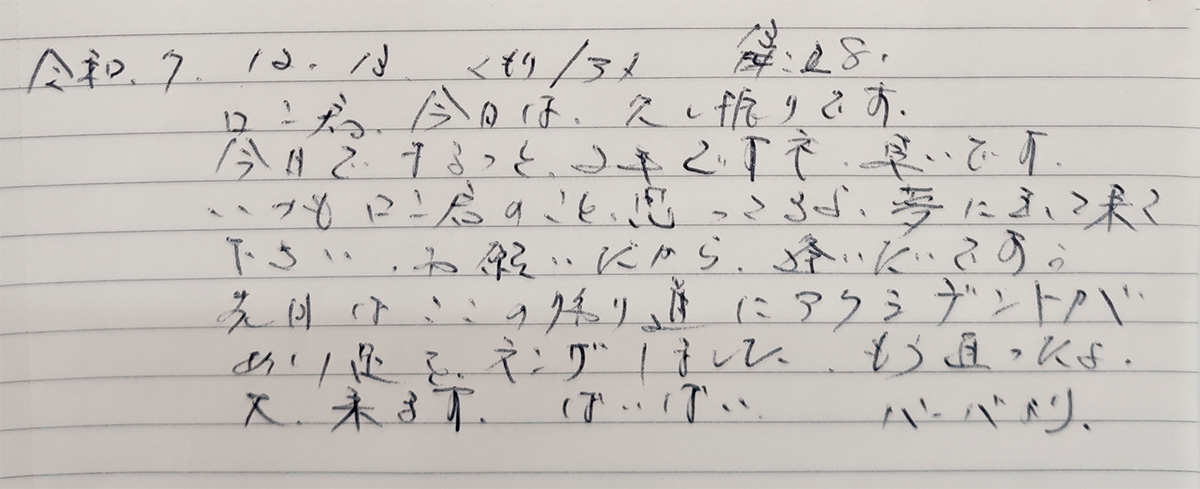 令和.7.12.12. くもり/3人
ロン君.今日は.久し振りです.
今日で する〜と.2年ですネ.早いです.
いつもロン君のこと.思ってるよ.夢に 来て
下さい.お願いだから.逢いたいです。
先日はここの帰り道にアクシデントが
あり足を.ネンザしました.もう直ったよ.
又.来ます. ばいばい. バーバより.